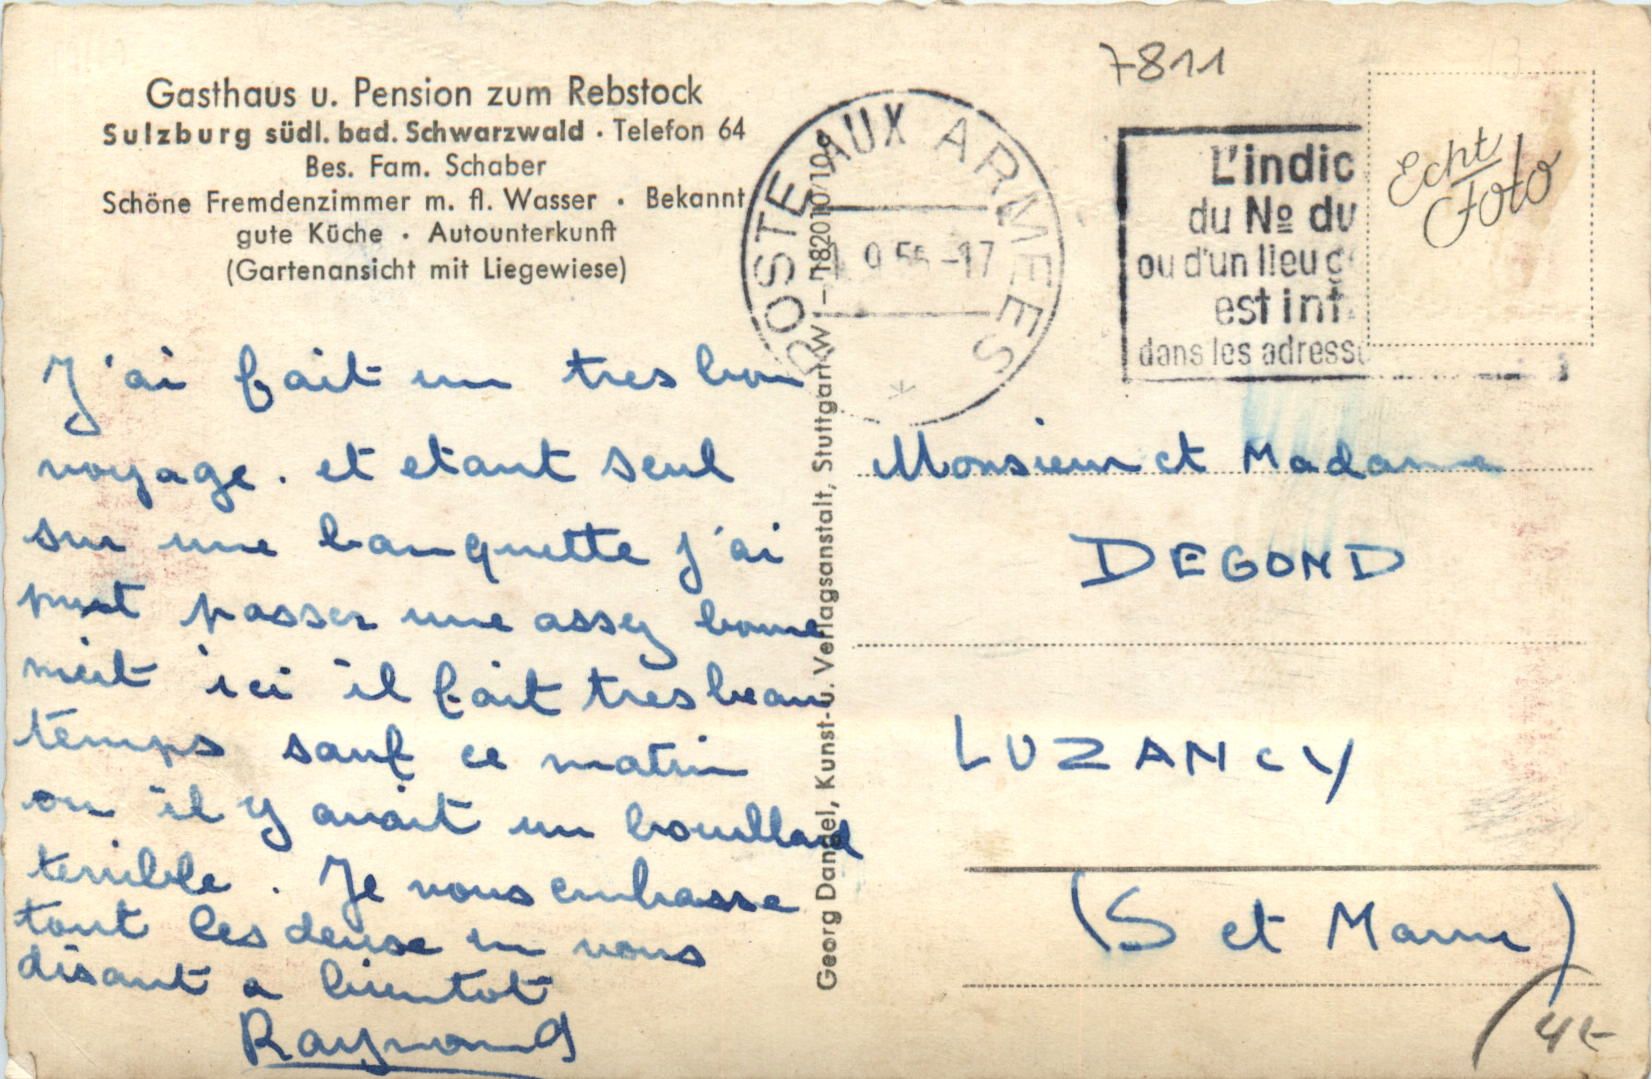 Gasthaus u. Pension zum Rebstock
Sulzburg südl. bad. Schwarzwald · Telefon 64
Bes. Fam. Schaber
Schöne Fremdenzimmer m. fl. Wasser · Bekannt
gute Küche · Autounterkunft
(Gartenansicht mit Liegewiese)
J'ai fait un tres bon
voyage. et etant seul
sur une banquette j'ai
put passer une assez bonne
nuit ici il fait tres beau
temps sauf ce matin
ou il y avait un brouillard
terrible. Je vous embrasse
tout les deuse en vous
disant a bientot
Raymond
Georg Dangel, Kunst- u. Verlagsanstalt, Stuttgart-W
POSTE AUX ARMEES
9 56 -17
7811
L'indic
du Nº du
ou d'un lieu g
est int
dans les adress
Echt
Foto
Monsieur et Madame
DEGOND
LUZANCY
(S et Marne)
4€